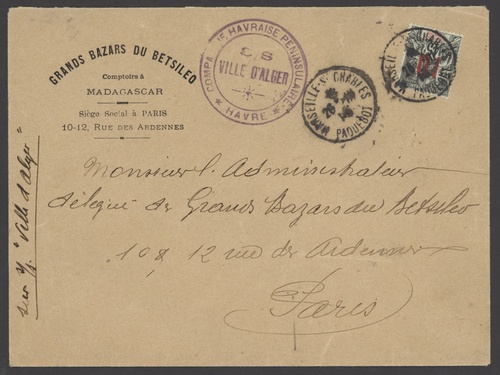 GRANDS BAZARS DU BETSILEO
Comptoirs à
MADAGASCAR
Siège Social à PARIS
10-12, RUE DES ARDENNES
COMPAGNIE HAVRAISE PENINSULAIRE
S/S
VILLE D'ALGER
HAVRE
MARSEILLE-St CHARLES
PAQUEBOT
Monsieur l'Administrateur
délégué des Grands Bazars du Betsileo
10 & 12 rue des Ardennes
Paris
"Ville d'Alger"